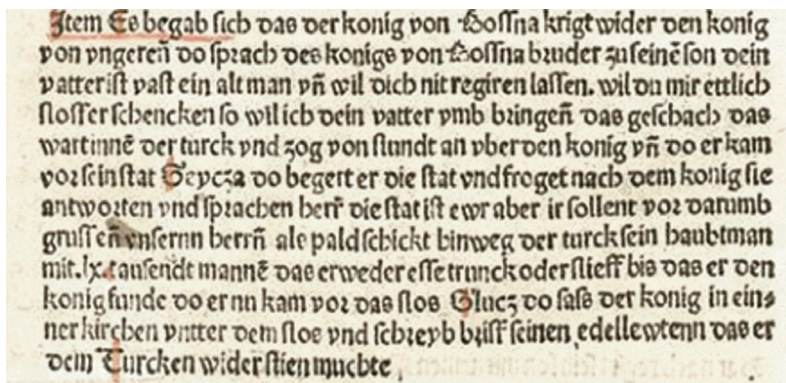 Jtem Es begab sich das der konig von Bossna krigt wider den konig
von vngeren̄ do sprach des konigs von Bossna bruder zu seinē son dein
vatter ist vast ein alt man vn̄ wil dich nit regiren lassen. wil du mir ettlich
slosser schencken so wil ich dein vatter vmb bringen̄ das geschach das
wart innē der turck vnd zog von stundt an vber den konig vn̄ do er kam
vor sein stat Geycza do begert er die stat vnd froget nach dem konig sie
antworten vnd sprachen herr̄ die stat ist ewr aber ir sollent vor darumb
grussen̄ vnsernn herrn̄ als pald schickt hinweg der turck sein haubtman
mit .lx. tausendt mannē das er weder esse trunck oder slieff bis das er den
konig funde do er nu kam vor das slos Glucz do sass der konig in ein⸗
ner kirchen vntter dem slos vnd schreyb briff seinen edellewtenn das er
dem Turcken widerstien muchte.